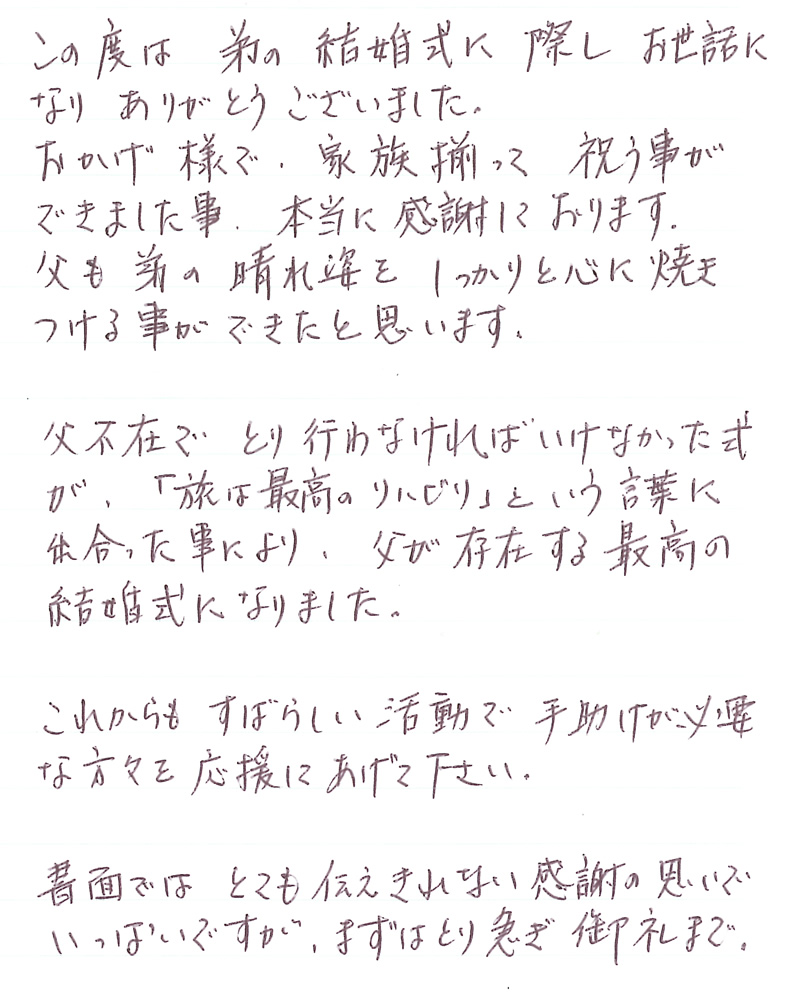 この度は 弟の 結婚式に 際し お世話に
なり ありがとうございました。
おかげ様で、家族揃って 祝う事が
できました事、本当に感謝しております。
父も 弟の 晴れ姿を しっかりと心に焼き
つける事ができたと思います。
父不在で とり行わなければいけなかった式
が、「旅は最高のリハビリ」という言葉に
出合った事により、父が存在する最高の
結婚式になりました。
これからも すばらしい活動で 手助けが必要
な方々を応援してあげて下さい。
書面では とても伝えきれない感謝の思いで
いっぱいですが、まずはとり急ぎ御礼まで。